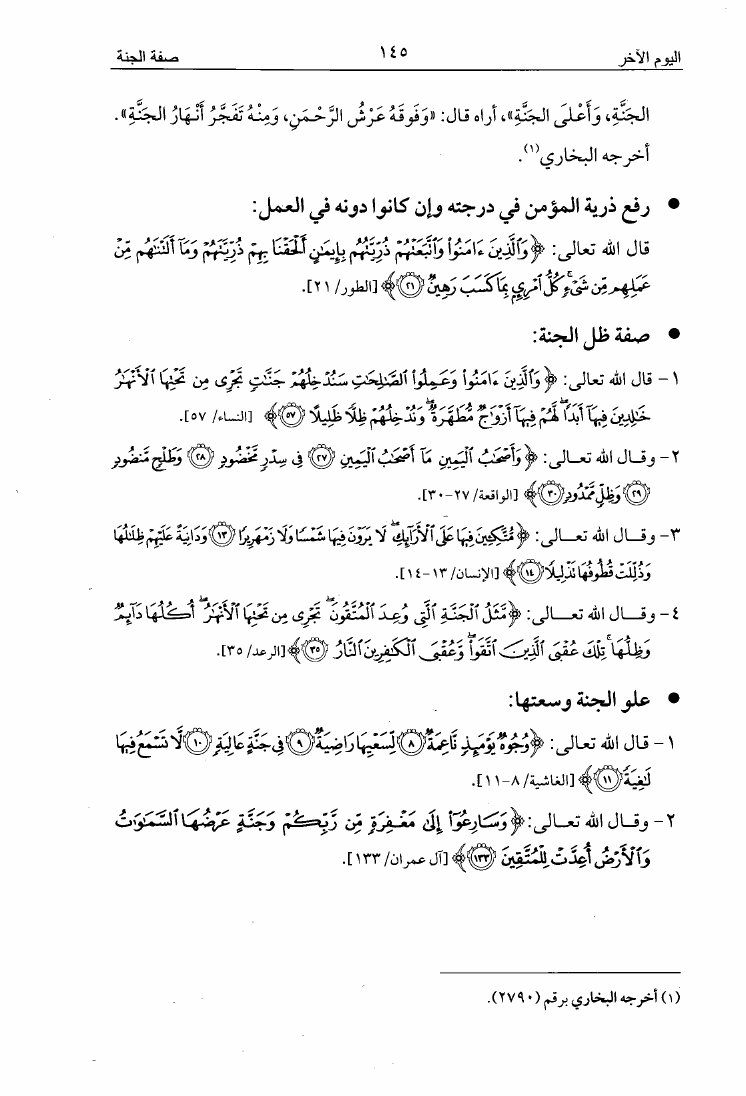 اليوم الآخر ١٤٥ صفة الجنة
الجَنَّةِ، وَأَعْلَى الجَنَّةِ»، أراه قال: «وَفَوقَهُ عَرْشُ الرَّحْمَنِ، وَمِنْهُ تَفَجَّرُ أَنْهَارُ الجَنَّةِ».
أخرجه البخاري(١).
● رفع ذرية المؤمن في درجته وإن كانوا دونه في العمل:
قال الله تعالى: ﴿وَٱلَّذِينَ ءَامَنُوا۟ وَٱتَّبَعَتْهُمْ ذُرِّيَّتُهُم بِإِيمَـٰنٍ أَلْحَقْنَا بِهِمْ ذُرِّيَّتَهُمْ وَمَآ أَلَتْنَـٰهُم مِّنْ
عَمَلِهِم مِّن شَىْءٍ كُلُّ ٱمْرِئٍۭ بِمَا كَسَبَ رَهِينٌ ﴿٢١﴾﴾ [الطور/ ٢١].
● صفة ظل الجنة:
١- قال الله تعالى: ﴿وَٱلَّذِينَ ءَامَنُوا۟ وَعَمِلُوا۟ ٱلصَّـٰلِحَـٰتِ سَنُدْخِلُهُمْ جَنَّـٰتٍ تَجْرِى مِن تَحْتِهَا ٱلْأَنْهَـٰرُ
خَـٰلِدِينَ فِيهَآ أَبَدًا ۖ لَّهُمْ فِيهَآ أَزْوَٰجٌ مُّطَهَّرَةٌ ۖ وَنُدْخِلُهُمْ ظِلًّا ظَلِيلًا ﴿٥٧﴾﴾ [النساء/ ٥٧].
٢- وقـال الله تعـالى: ﴿وَأَصْحَـٰبُ ٱلْيَمِينِ مَآ أَصْحَـٰبُ ٱلْيَمِينِ ﴿٢٧﴾ فِى سِدْرٍ مَّخْضُودٍ ﴿٢٨﴾ وَطَلْحٍ مَّنضُودٍ
﴿٢٩﴾ وَظِلٍّ مَّمْدُودٍ ﴿٣٠﴾﴾ [الواقعة/ ٢٧-٣٠].
٣- وقـال الله تعـالى: ﴿مُّتَّكِـِٔينَ فِيهَا عَلَى ٱلْأَرَآئِكِ ۖ لَا يَرَوْنَ فِيهَا شَمْسًا وَلَا زَمْهَرِيرًا ﴿١٣﴾ وَدَانِيَةً عَلَيْهِمْ ظِلَـٰلُهَا
وَذُلِّلَتْ قُطُوفُهَا تَذْلِيلًا ﴿١٤﴾﴾ [الإنسان/ ١٣-١٤].
٤- وقـال الله تعـالى: ﴿مَّثَلُ ٱلْجَنَّةِ ٱلَّتِى وُعِدَ ٱلْمُتَّقُونَ ۖ تَجْرِى مِن تَحْتِهَا ٱلْأَنْهَـٰرُ ۖ أُكُلُهَا دَآئِمٌ
وَظِلُّهَا ۚ تِلْكَ عُقْبَى ٱلَّذِينَ ٱتَّقَوا۟ ۖ وَّعُقْبَى ٱلْكَـٰفِرِينَ ٱلنَّارُ ﴿٣٥﴾﴾ [الرعد/ ٣٥].
● علو الجنة وسعتها:
١- قال الله تعالى: ﴿وُجُوهٌ يَوْمَئِذٍ نَّاعِمَةٌ ﴿٨﴾ لِّسَعْيِهَا رَاضِيَةٌ ﴿٩﴾ فِى جَنَّةٍ عَالِيَةٍ ﴿١٠﴾ لَّا تَسْمَعُ فِيهَا
لَـٰغِيَةً ﴿١١﴾﴾ [الغاشية/ ٨-١١].
٢- وقـال الله تعـالى: ﴿وَسَارِعُوٓا۟ إِلَىٰ مَغْفِرَةٍ مِّن رَّبِّكُمْ وَجَنَّةٍ عَرْضُهَا ٱلسَّمَـٰوَٰتُ
وَٱلْأَرْضُ أُعِدَّتْ لِلْمُتَّقِينَ ﴿١٣٣﴾﴾ [آل عمران/ ١٣٣].
(١) أخرجه البخاري برقم (٢٧٩٠).